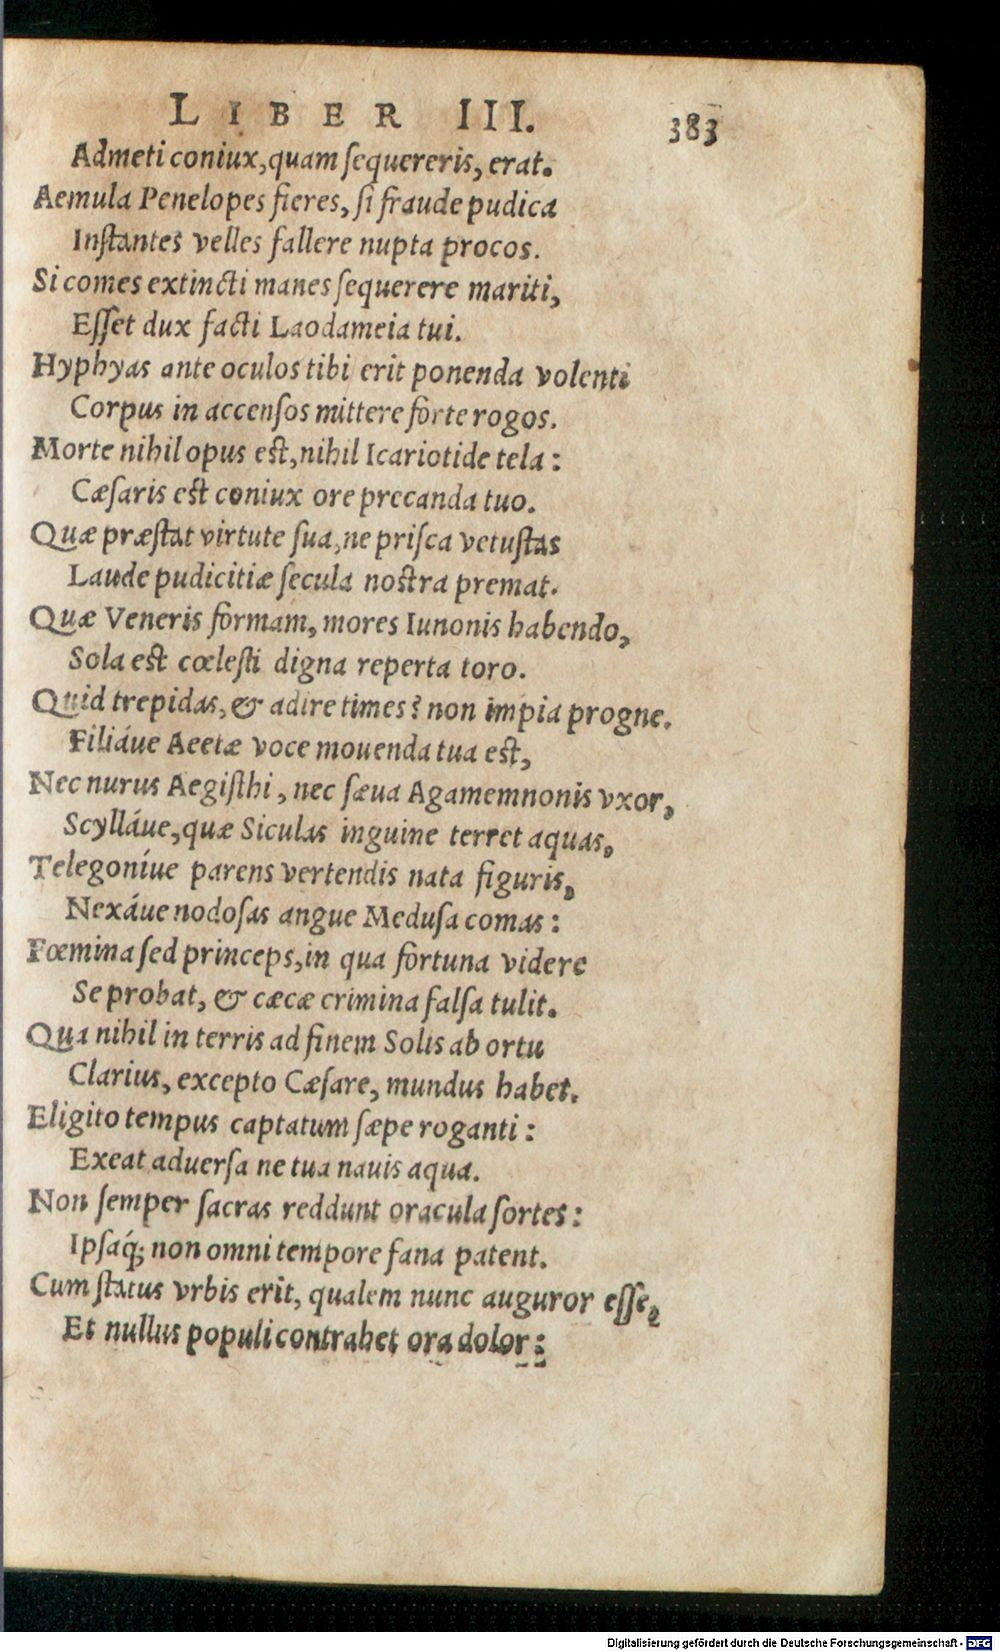 LIBER III. 383
Admeti coniux, quam sequereris, erat.
Aemula Penelopes fieres, si fraude pudica
Instantes velles fallere nupta procos.
Si comes extincti manes sequerere mariti,
Esset dux facti Laodameia tui.
Hyphyas ante oculos tibi erit ponenda volenti
Corpus in accensos mittere forte rogos.
Morte nihil opus est, nihil Icariotide tela:
Cæsaris est coniux ore precanda tuo.
Quæ præstat virtute sua, ne prisca vetustas
Laude pudicitiæ secula nostra premat.
Quæ Veneris formam, mores Iunonis habendo,
Sola est cœlesti digna reperta toro.
Quid trepidas, & adire times? non impia progne.
Filiáue Aeetæ voce mouenda tua est,
Nec nurus Aegisthi, nec sæua Agamemnonis vxor,
Scylláue, quæ Siculas inguine terret aquas,
Telegoníue parens vertendis nata figuris,
Nexáue nodosas angue Medusa comas:
Fœmina sed princeps, in qua fortuna videre
Se probat, & cæcæ crimina falsa tulit.
Qua nihil in terris ad finem Solis ab ortu
Clarius, excepto Cæsare, mundus habet.
Eligito tempus captatum sæpe roganti:
Exeat aduersa ne tua nauis aqua.
Non semper sacras reddunt oracula sortes:
Ipsaq́; non omni tempore fana patent.
Cum status vrbis erit, qualem nunc auguror esse,
Et nullus populi contrahet ora dolor:
Digitalisierung gefördert durch die Deutsche Forschungsgemeinschaft - DFG